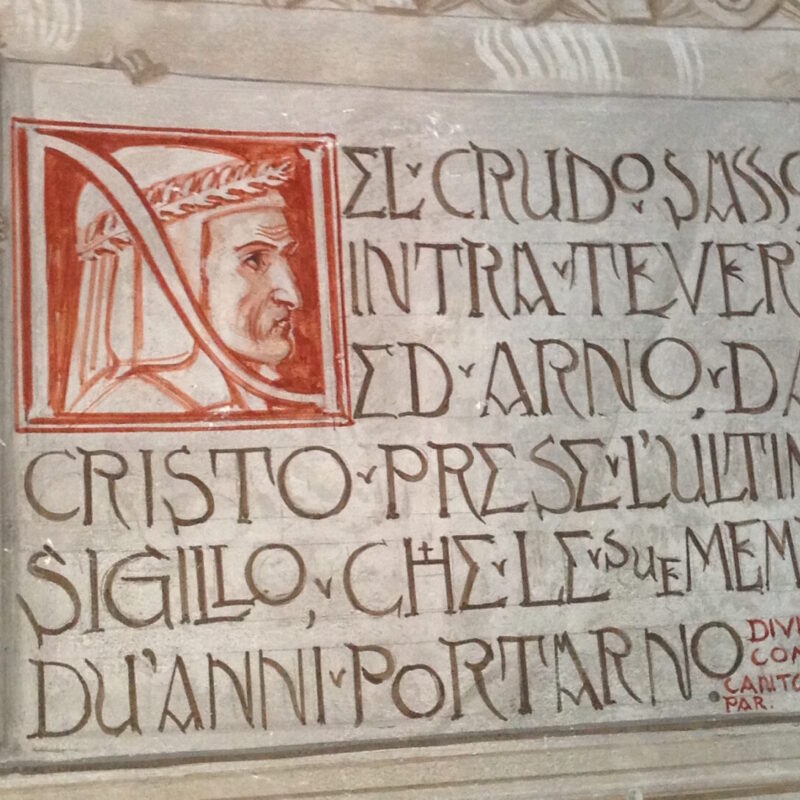 NEL CRUDO SASSO,
INTRA TEVER
ED ARNO, DA
CRISTO PRESE L'ULTIM
SIGILLO, CHE LE SUE MEM
DU'ANNI PORTARNO.
DIVI
COM
CANTO
PAR.